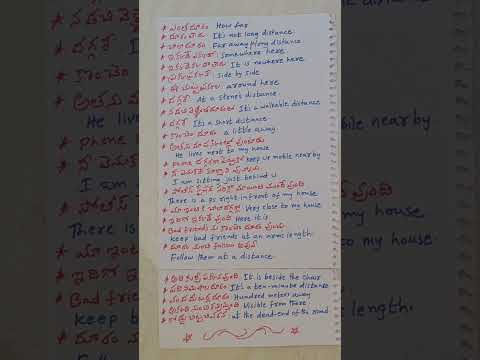 * ఎంత దూరం How far
* దూరం కాదు It's not long distance
* చాలా దూరం Far away/long distance
* ఇక్కడే ఎక్కడో Somewhere here
It is nowhere here
* ప్రక్కప్రక్కనే Side by side
* ఈ చుట్టుప్రక్కల around here
* దగ్గరే At a stones distance
It's a walkable distance
* దగ్గరే It's a short distance
* కొంచెం దూరం a little away
He lives next to my house
* phone దగ్గరగా పెట్టుకో keep ur mobile near by
I am sitting just behind u
There is a PS right infront of my house
* మా ఇంటికి చాలా దగ్గర్లో Very close to my house
* ఇదిగో ఇక్కడే ఉంది Here it is
* Bad friends ను కొంచెం దూరం ఉంచు
keep bad friends at an arms length
* దూరం నుంచి follow అవ్వు
Follow them at a distance
* కుర్చీ పక్కన ఉంది It is beside the chair
* పది నిమిషాల దూరం It's a ten-minute distance
* వంద మీటర్ల దూరం Hundred meters away
Visible from there
* రోడ్డు చిట్టచివరన at the dead-end of the road